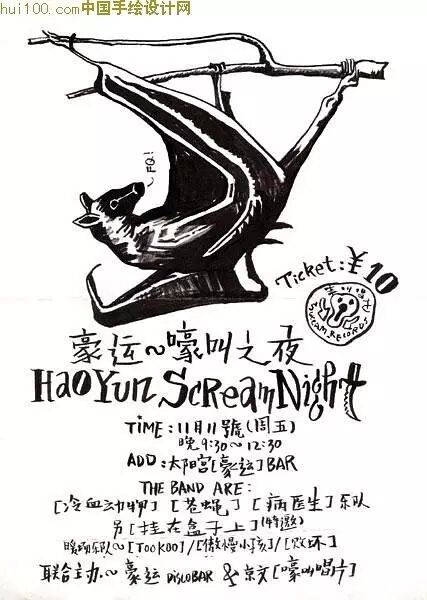 hui100.com中国手绘设计网
FQ!
Ticket: ¥10
嚎叫唱片
Scream Records
豪运~嚎叫之夜
HaoYun ScreamNight
TIME: 11月11號(周五)
晚9:30~12:30
ADD: 太阳宫[豪运]BAR
THE BAND ARE:
[冷血动物][苍蝇][病医生]乐队
另[挂在盒子上](特邀)
暖场乐队~[TOOKOO]/[傲慢小孩]/[败坏]
联合主办~豪运 DISCOBAR & 京文[嚎叫唱片]